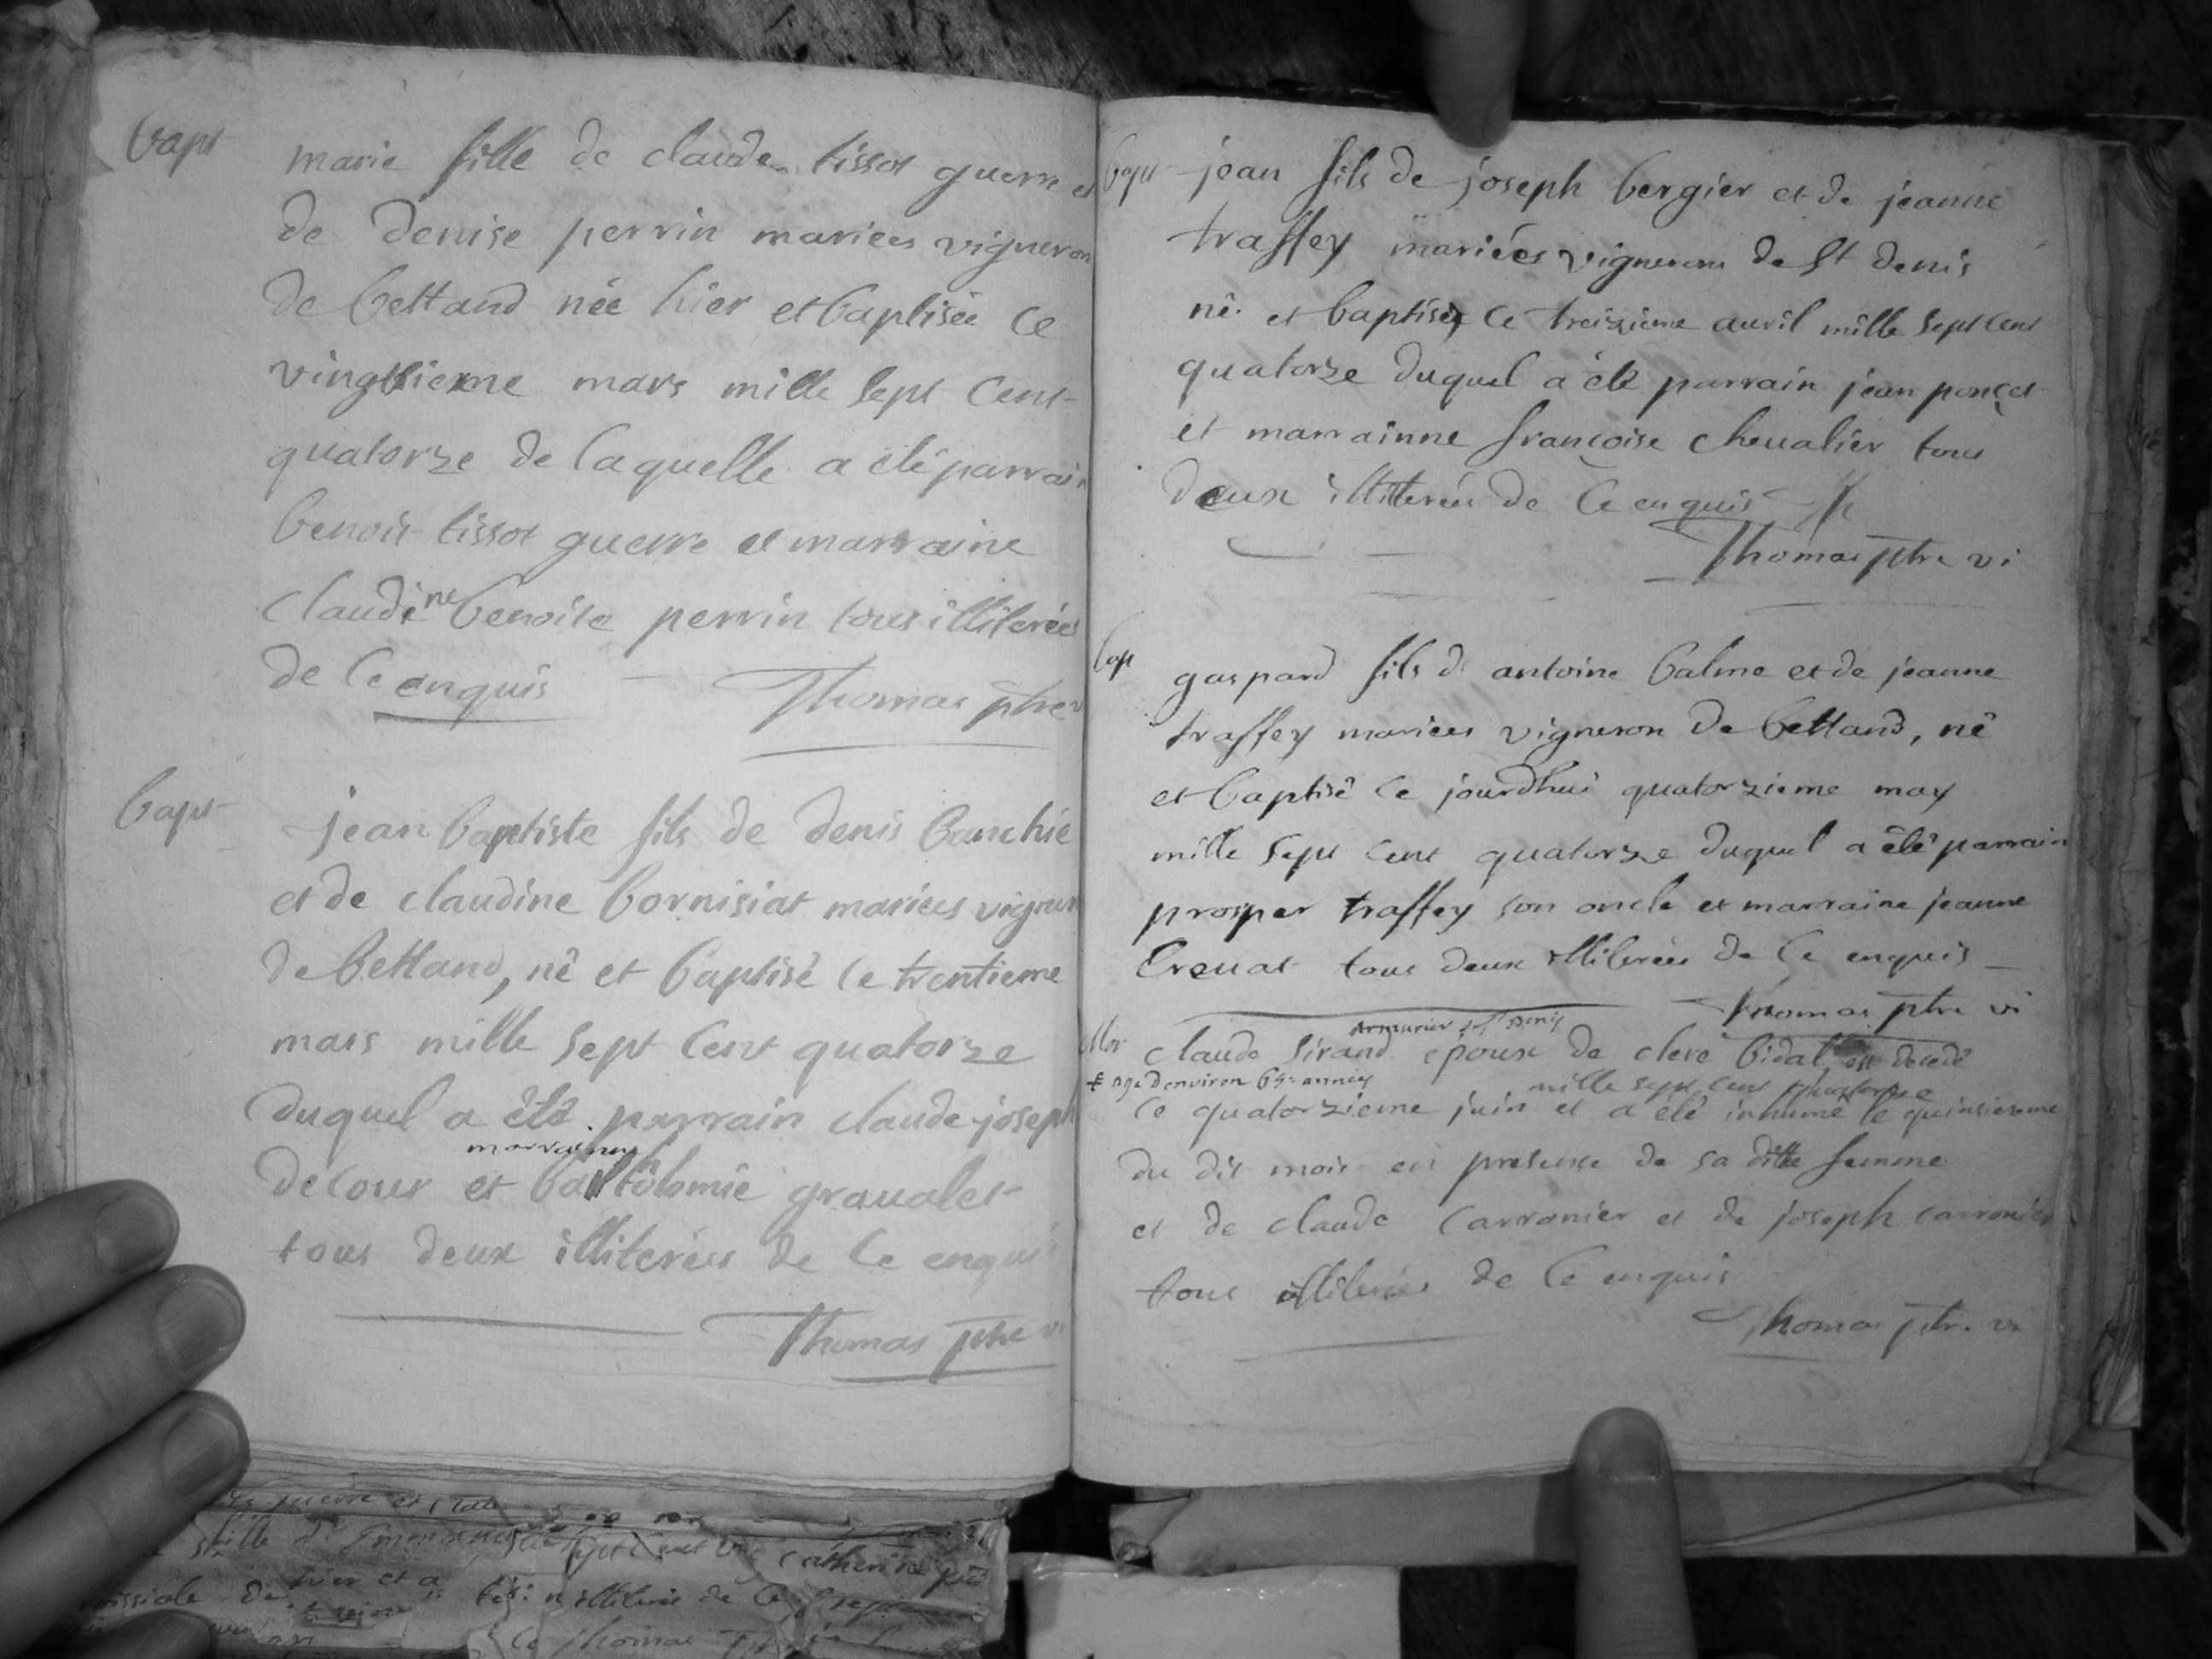 bapt
marie fille de claude tissot guerre et
de denise perrin mariees vigneron
de bettand née hier et baptisée ce
vingtieme mars mille sept cent
quatorze de laquelle a èté parrain
benoit tissot guerre et marraine
claudine benoite perrin tous illiterées
de ce enquis
Thomas ptre v
bapt
jean baptiste fils de denis banchie
et de claudine bornisiat mariees vigner
de bettand, nê et baptisé ce trentieme
mars mille sept cent quatorze
duquel a êtê parrain claude joseph
marrainne
decour et bartôlomie graualet
tous deux illiterées de ce enquis
Thomas ptre vi
bapt
jean fils de joseph bergier et de jeanne
traffey mariées vignerons de St denis
nê et baptisé ce treizieme auvil mille sept cent
quatorze duquel a êtê parrain jean ponçet
et marrainne francoise cheualier tous
deux illiterées de ce enquis
Thomas ptre vi
bap
gaspard fils de antoine balme et de jeanne
traffey mariees vigneron de bettand, nê
et baptisê ce jourdhui quatorzieme may
mille sept cent quatorze duquel a êtê parrain
prosper traffey son oncle et marraine jeanne
Creuat tous deux illiterées de ce enquis
Thomas ptre vi
Mor
armurier st denis
claude sirand époux de clere bidal est decedé
age denviron 65 années
mille sept cent quatorze
ce quatorzieme juin et a êtê inhumé le quinsieme
du dit mois en presence de sa ditte femme
et de claude carronier et de joseph carronier
tous illiterées de ce enquis
Thomas ptre vi
guerre et
fille
Catherine
hier et a
illiterés de ce
Thomas